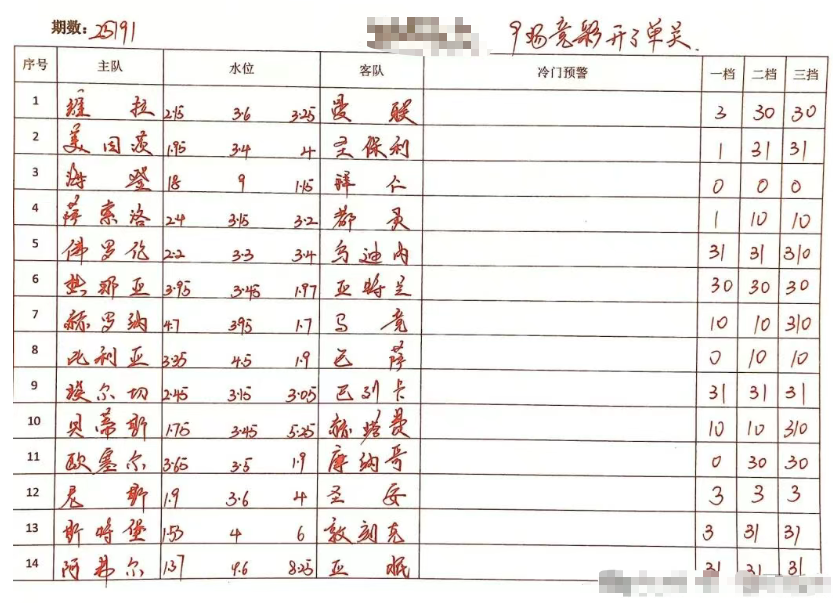 期数: 25191 9场竞彩开了单关.
序号 主队 水位 客队 冷门预警 一档 二档 三档
1 维拉 2.15 3.6 3.25 曼联 3 30 30
2 美因茨 1.95 3.4 4 圣保利 1 31 31
3 海登 18 9 1.15 拜仁 0 0 0
4 萨索洛 2.4 3.15 3.2 都灵 1 10 10
5 佛罗伦 2.2 3.3 3.4 乌迪内 31 31 310
6 热那亚 3.95 3.45 1.97 亚特兰 30 30 30
7 赫罗纳 4.7 3.95 1.7 马竞 10 10 310
8 比利亚 3.35 4.5 1.9 巴萨 0 10 10
9 埃尔切 2.45 3.15 3.05 巴列卡 31 31 31
10 贝蒂斯 1.75 3.45 5.25 赫塔费 10 10 310
11 欧塞尔 3.65 3.5 1.9 摩纳哥 0 30 30
12 尼斯 1.9 3.6 4 圣安 3 3 3
13 斯特堡 1.53 4 6 敦刻克 3 31 31
14 阿弗尔 1.37 4.6 8.25 亚眠 31 31 31